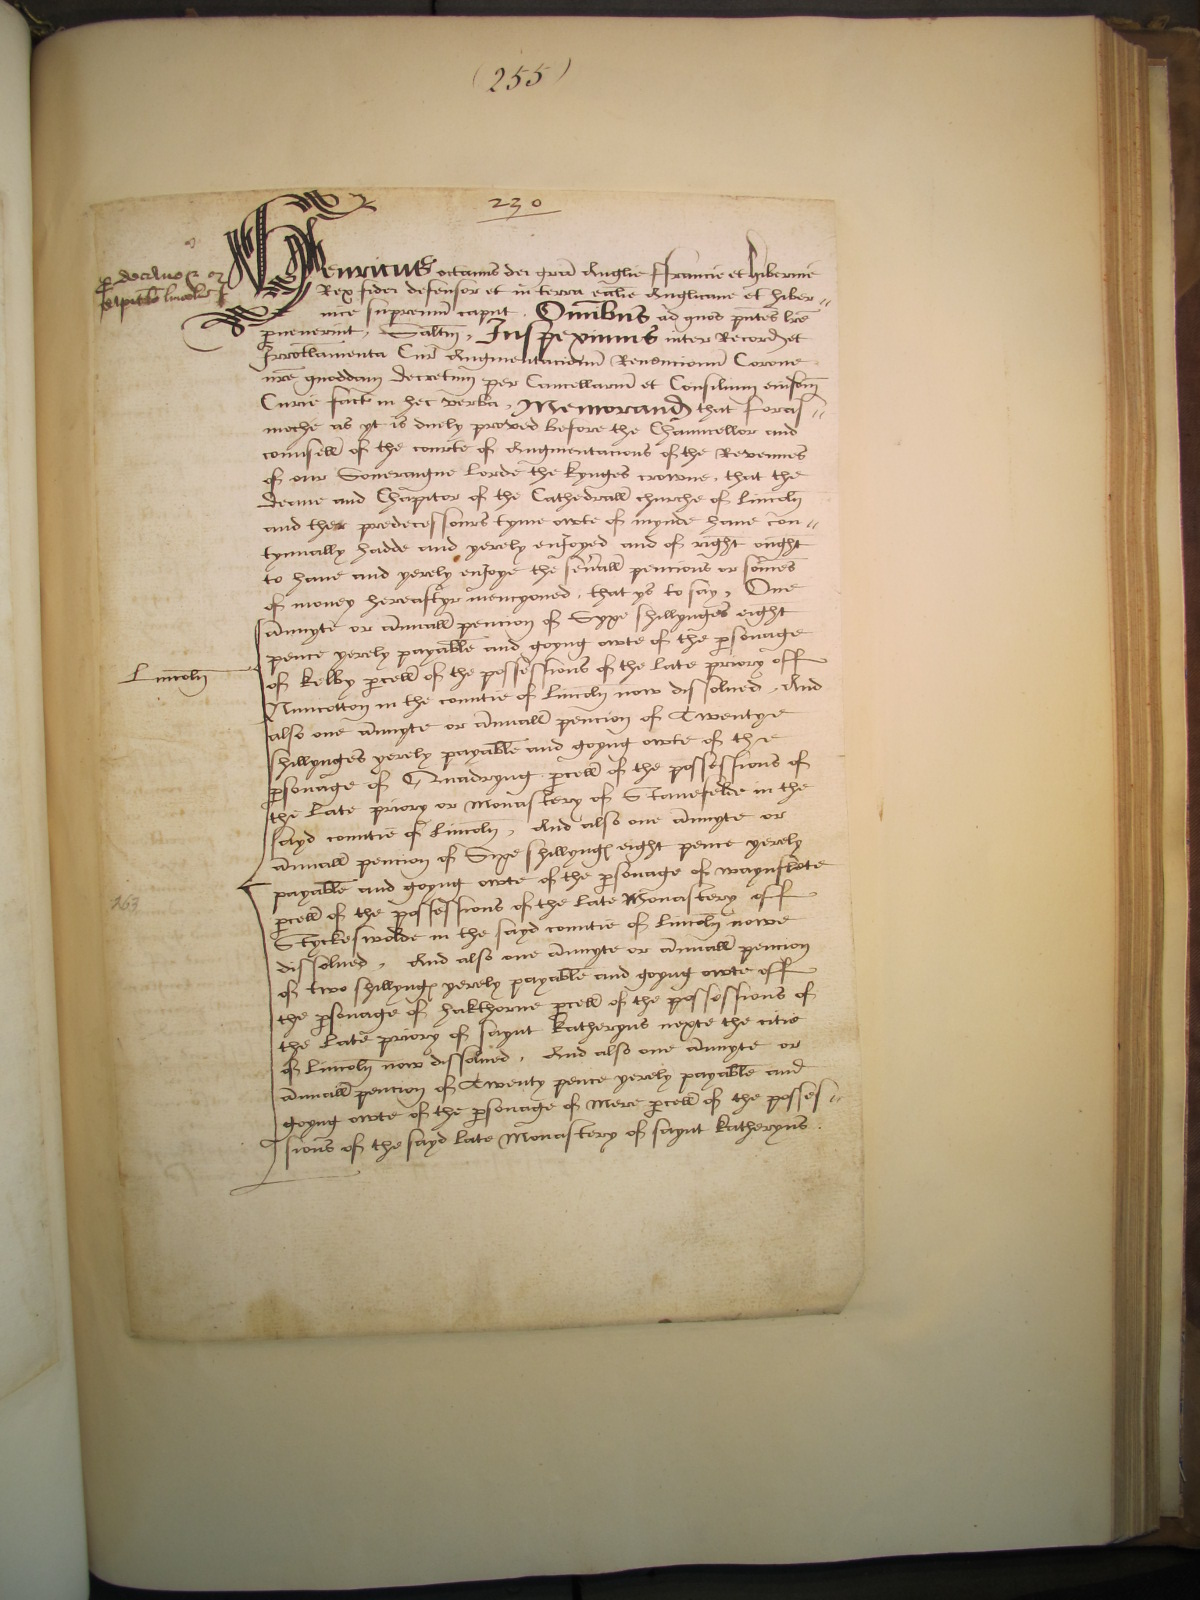 (255)
230
p decano et
capitlo lincoln
Henricus octauus dei gra Anglie ffrancie et hibernie
Rex fidei defensor et in terra ecclie Anglicane et hiber-
nice supremu caput. Omibus ad quos pntes lre
puenerint, Saltm, Inspeximus inter Record et
Irrotlamenta Cur Augmentacionu Reuencionu Corone
nre quoddam decretum per Cancellariu et Consilium eiusdm
Curie fact in hec verba, Memorand that foras-
moche as yt is duely proved before the Chauncellor and
counsell of the courte of Augmentacions of the Revenues
of our Soueraigne lorde the kynges crowne, that the
deane and Chapitor of the Cathedrall churche of Lincoln
and ther predecessours tyme owte of mynde haue con-
tynually hadde and yerely enjoyed and of right ought
to haue and yerely enjoye the seuall pencions or somes
of money hereaftyr mencyoned, that ys to say, One
annuyte or annuall pencion of Syxe shillynges eight
pence yerely payable and goyng owte of the psonage
Lincoln
of kelby pcell of the possessions of the late priory off
Nuncotton in the countie of Lincoln now dissolued, And
also one annuyte or annuall pencion of Twentye
shillynges yerely payable and goyng owte of the
psonage of Quadryng pcell of the possessions of
the late priory or Monastery of Stanefelde in the
sayd countie of Lincoln, And also one annuyte or
annuall pencion of Sixe shillyngs eight pence yerely
payable and goyng owte of the psonage of waynflete
263
pcell of the possessions of the late Monastery off
Styckeswolde in the sayd countie of Lincoln nowe
dissolued, And also one annuyte or annuall pencion
of two shillyngs yerely payable and goyng owte off
the psonage of hakthorne pcell of the possessions of
the late priory of saynt katheryns nexte the citie
of Lincoln now dissolued, And also one annuyte or
annuall pencion of Twenty pence yerely payable and
goyng owte of the psonage of Mere pcell of the posses-
sions of the sayd late Monastery of saynt katheryns.